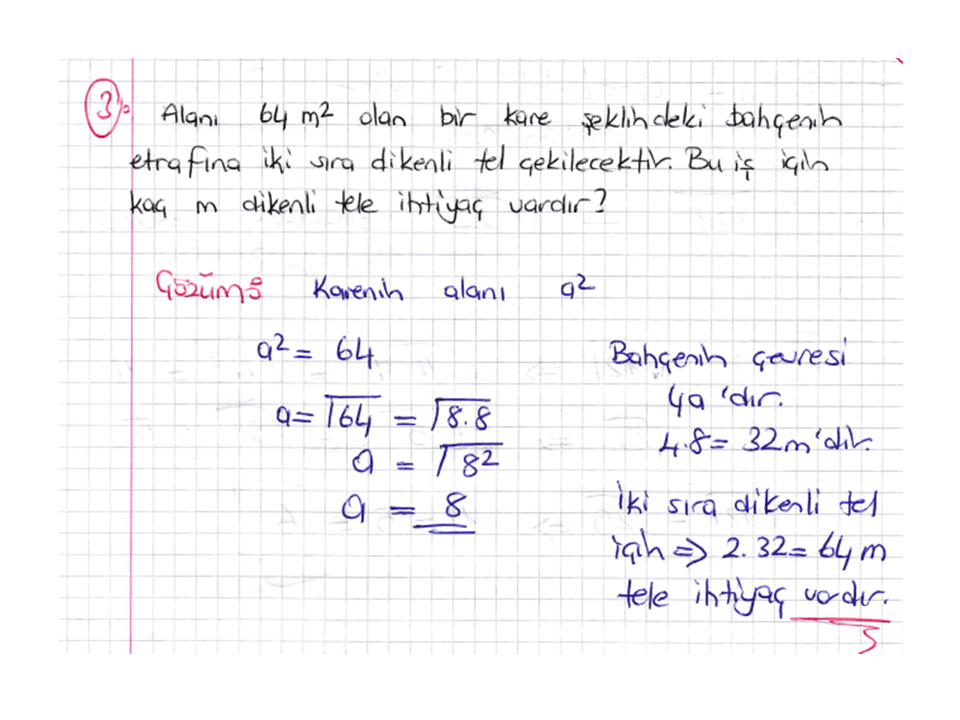 3) Alanı 64 m² olan bir kare şeklindeki bahçenin
etrafına iki sıra dikenli tel çekilecektir. Bu iş için
kaç m dikenli tele ihtiyaç vardır?
Çözüm: Karenin alanı a²
a² = 64
a = √64 = √8.8
a = √8²
a = 8
Bahçenin çevresi
4a 'dır.
4.8 = 32m'dir.
İki sıra dikenli tel
için ⇒ 2.32 = 64 m
tele ihtiyaç vardır.